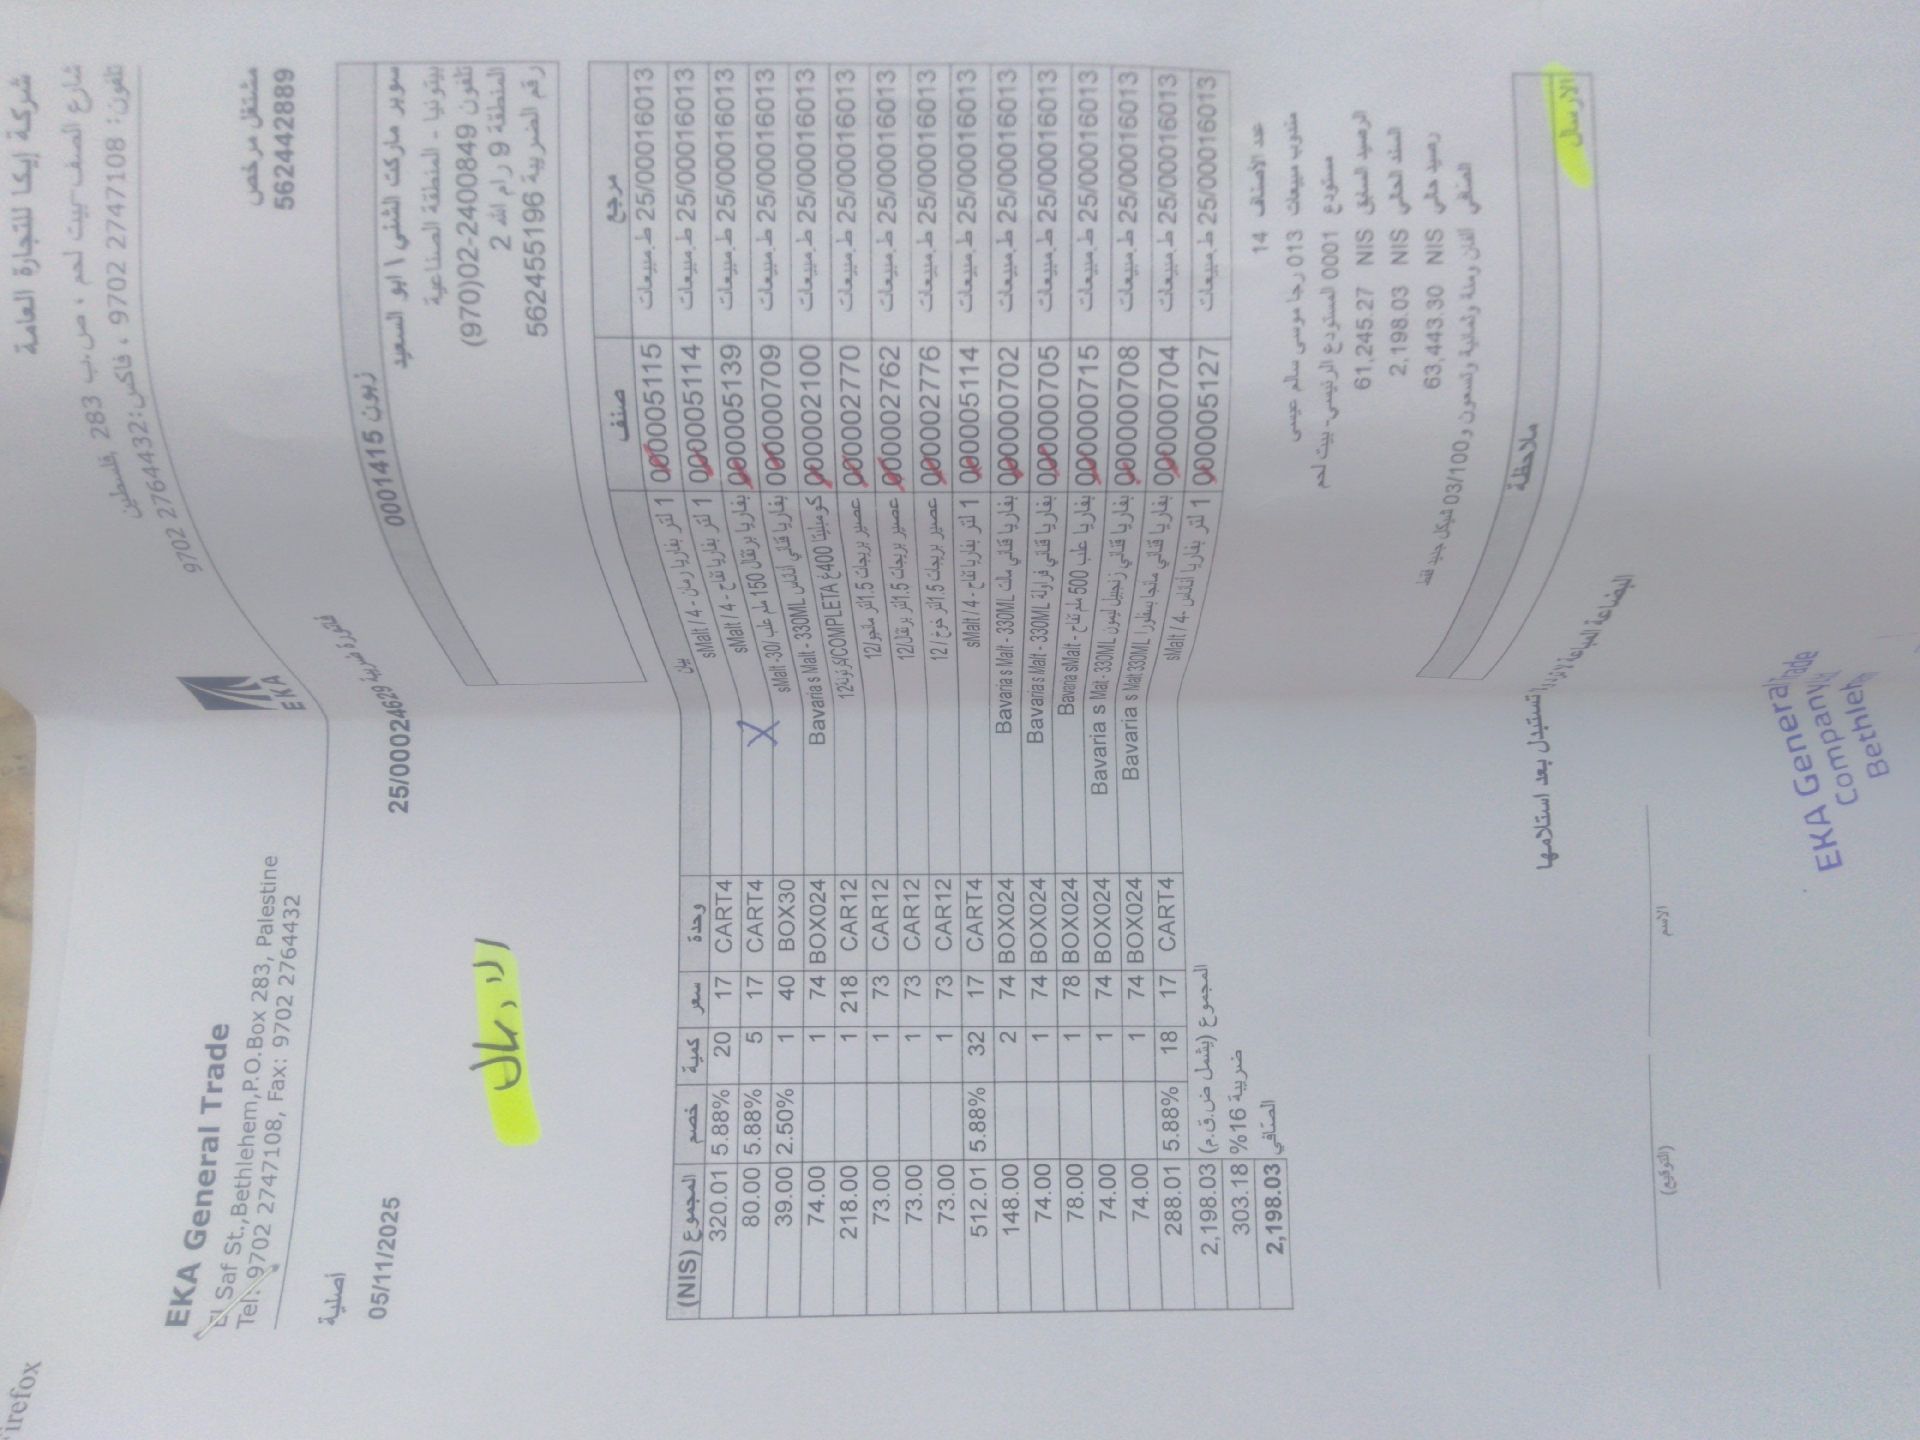 Firefox
شركة إيكا للتجارة العامة
شارع الصف-بيت لحم ، ص.ب 283 فلسطين
تلفون: 2747108 9702 ، فاكس: 2764432 9702
EKA
EKA General Trade
El Saf St.,Bethlehem,P.O.Box 283, Palestine
Tel: 9702 2747108, Fax: 9702 2764432
مشتغل مرخص
562442889
أصلية
فتورة ضريبية
05/11/2025
25/00024629
زبون 0001415
سوبر ماركت الشني \ ابو السعيد
بيتونيا - المنطقة الصناعية
تلفون 02-2400849(970)
المنطقة 9 رام الله 2
رقم الضريبة 562455196
الارسال
مرجع صنف بيان وحدة سعر كمية خصم المجموع (NIS)
ط.مبيعات 25/00016013 000005115 1 لتر بفاريا رمان - 4 / sMalt CART4 17 20 5.88% 320.01
ط.مبيعات 25/00016013 000005114 1 لتر بفاريا تفاح - 4 / sMalt CART4 17 5 5.88% 80.00
ط.مبيعات 25/00016013 000005139 بفاريا برتقال 150 ملم علب /30- sMalt BOX30 40 1 2.50% 39.00
ط.مبيعات 25/00016013 000000709 بفاريا قناني أناناس Bavaria s Malt - 330ML BOX024 74 1 74.00
ط.مبيعات 25/00016013 000002100 كومبليتا 400غ COMPLETA/كرتونة12 CAR12 218 1 218.00
ط.مبيعات 25/00016013 000002770 عصير بريجات 1.5لتر مانجو/12 CAR12 73 1 73.00
ط.مبيعات 25/00016013 000002762 عصير بريجات 1.5لتر برتقال/12 CAR12 73 1 73.00
ط.مبيعات 25/00016013 000002776 عصير بريجات 1.5لتر خوخ / 12 CAR12 73 1 73.00
ط.مبيعات 25/00016013 000005114 1 لتر بفاريا تفاح - 4 / sMalt CART4 17 32 5.88% 512.01
ط.مبيعات 25/00016013 000000702 بفاريا قناني مالت Bavaria s Malt - 330ML BOX024 74 2 148.00
ط.مبيعات 25/00016013 000000705 بفاريا قناني فراولة Bavaria s Malt - 330ML BOX024 74 1 74.00
ط.مبيعات 25/00016013 000000715 بفاريا علب 500 ملم تفاح - Bavaria sMalt BOX024 78 1 78.00
ط.مبيعات 25/00016013 000000708 بفاريا قناني زنجبيل ليمون Bavaria s Malt - 330ML BOX024 74 1 74.00
ط.مبيعات 25/00016013 000000704 بفاريا قناني مانجا بسفلورا Bavaria s Malt 330ML BOX024 74 1 74.00
ط.مبيعات 25/00016013 000005127 1 لتر بفاريا أناناس -4 / sMalt CART4 17 18 5.88% 288.01
المجموع (يشمل ض.ق.م) 2,198.03
ضريبة 16% 303.18
الصافي 2,198.03
عدد الأصناف 14
مندوب مبيعات 013 رجا موسى سالم عيسى
مستودع 0001 المستودع الرئيسي- بيت لحم
الرصيد السابق NIS 61,245.27
السند الحالي NIS 2,198.03
رصيد حالي NIS 63,443.30
الصافي الفان ومئة وثمانية وتسعون و03/100 شيكل جديد فقط
ملاحظة
الارسال
البضاعة المباعة لا ترد ولا تستبدل بعد استلامها
الاسم
(التوقيع)
EKA General Trade
Company